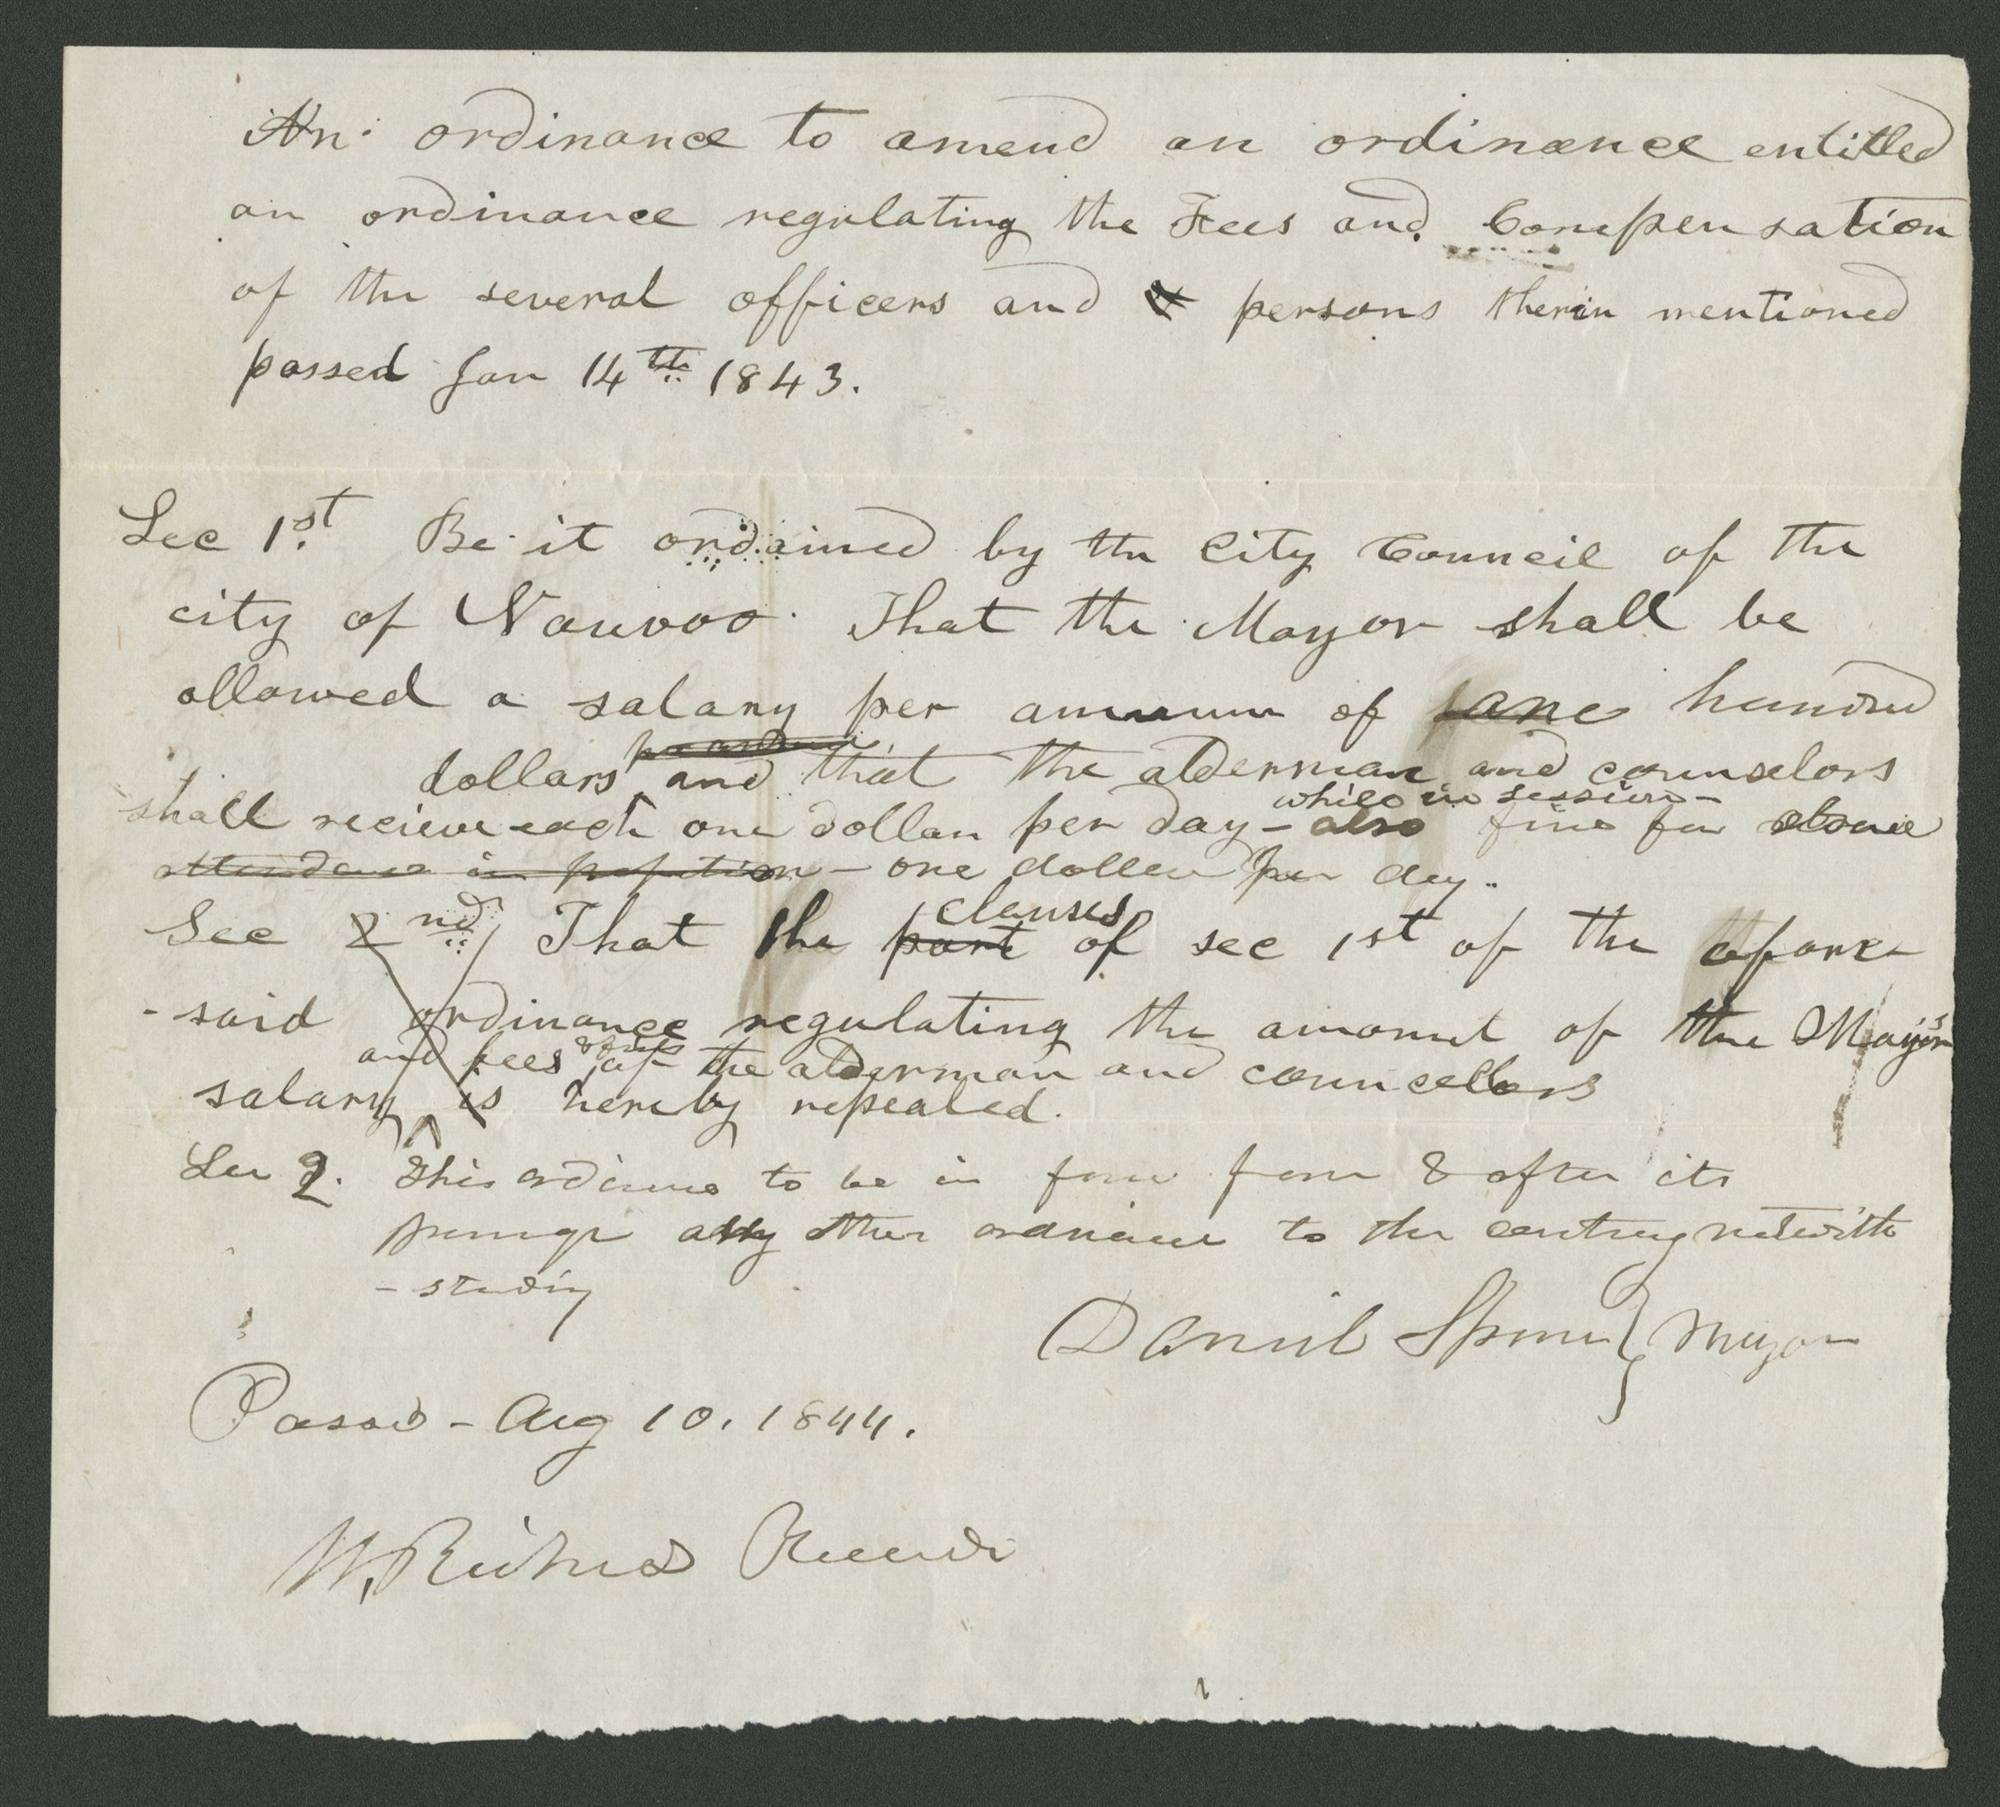 An ordinance to amend an ordinance entitled
an ordinance regulating the Fees and Compensation
of the several officers and persons therin mentioned
passed Jan 14th 1843.
Sec 1st. Be it ordained by the City Council of the
city of Nauvoo. That the Mayor shall be
allowed a salary per annum of one hundred
dollars and that the alderman and counselors
while in session-
shall recieve each one dollar per day - also fine for absence
attendance in - one dollar per day.
clauses
Sec 2nd, That the part of sec 1st of the afore-
-said ordinance regulating the amount of the Mayors
and fees & fines of the alderman and councellors
salary is hereby repealed.
Sec 2. This ordinance to be in force from & after its
passage any other ordinance to the contrary notwith
-standing
Daniel Spencer } Mayor
Passed - Aug 10. 1844.
W. Richards Recorder